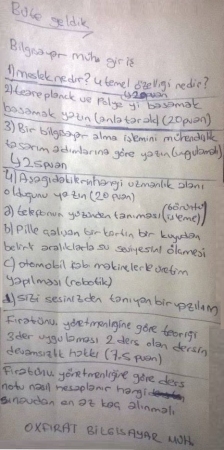 Büte geldik
Bilgisayar müh giriş
1) meslek nedir? 4 temel özelliği nedir?
20puan
basamak yazın (anlatarak) (20 puan)
3) Bir bilgisayar alma işlemini mühendislik
tasarım adımlarına göre yazın (uygulamalı)
25puan
4) Aşağıdakilerin hangi uzmanlık alanı
olduğunu yazın (20 puan)
a) telefonun yüzünden tanıması (görüntü
işleme)
b) Pille çalışan bir kartın bir kuyudan
belirli aralıklarla su seviyesini ölçmesi
c) otomobil fab makinelerle üretim
yapılması (robotik)
d) sizi sesinizden tanıyan bir yazılım
Fıratünv. yönetmenliğine göre teoriği
3 der uygulaması 2 ders olan dersin
devamsızlık hakkı (7.5 puan)
Fıratünv. yönetmenliğine göre ders
notu nasıl hesaplanır hangi
sınavdan en az kaç alınmalı
OXFIRAT BİLGİSAYAR MÜH